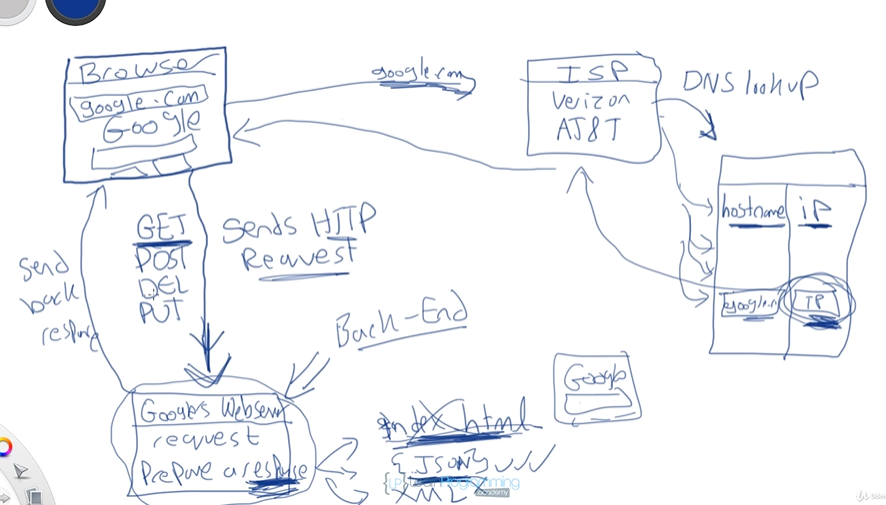 Browser
google.com
Google
google.com
ISP
Verizon
AT&T
DNS lookup
hostname
iP
IP
GET
POST
DEL
PUT
Sends HTTP
Request
Send
back
Back-End
Google's
request
Prepare a response
index html
{JSON}
XML
Google
Programming
academy